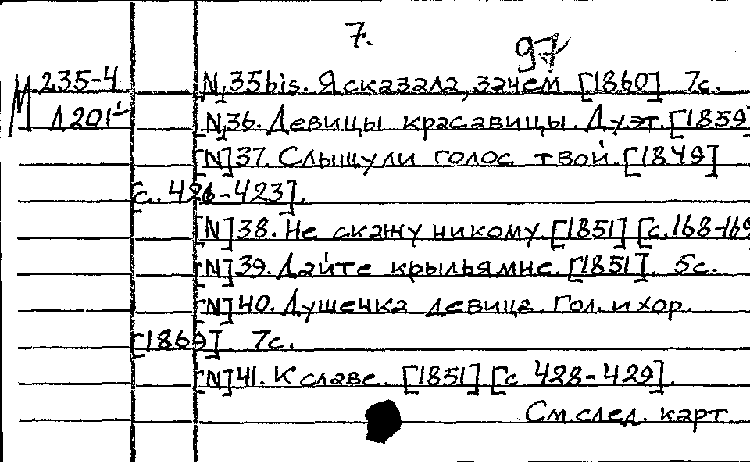 7.
97
М 235-4
Л 201
N 35bis. Я сказала, зачем [1860] 7с.
N 36. Девицы красавицы. Дуэт. [1859]
[N] 37. Слышу ли голос твой. [1849]
[с. 421-423].
[N] 38. Не скажу никому. [1851] [с. 168-169
[N] 39. Дайте крылья мне. [1851]. 5с.
[N] 40. Душечка девица. Гол. и хор.
[1869]. 7с.
[N] 41. К славе. [1851] [с 428-429].
См. след. карт